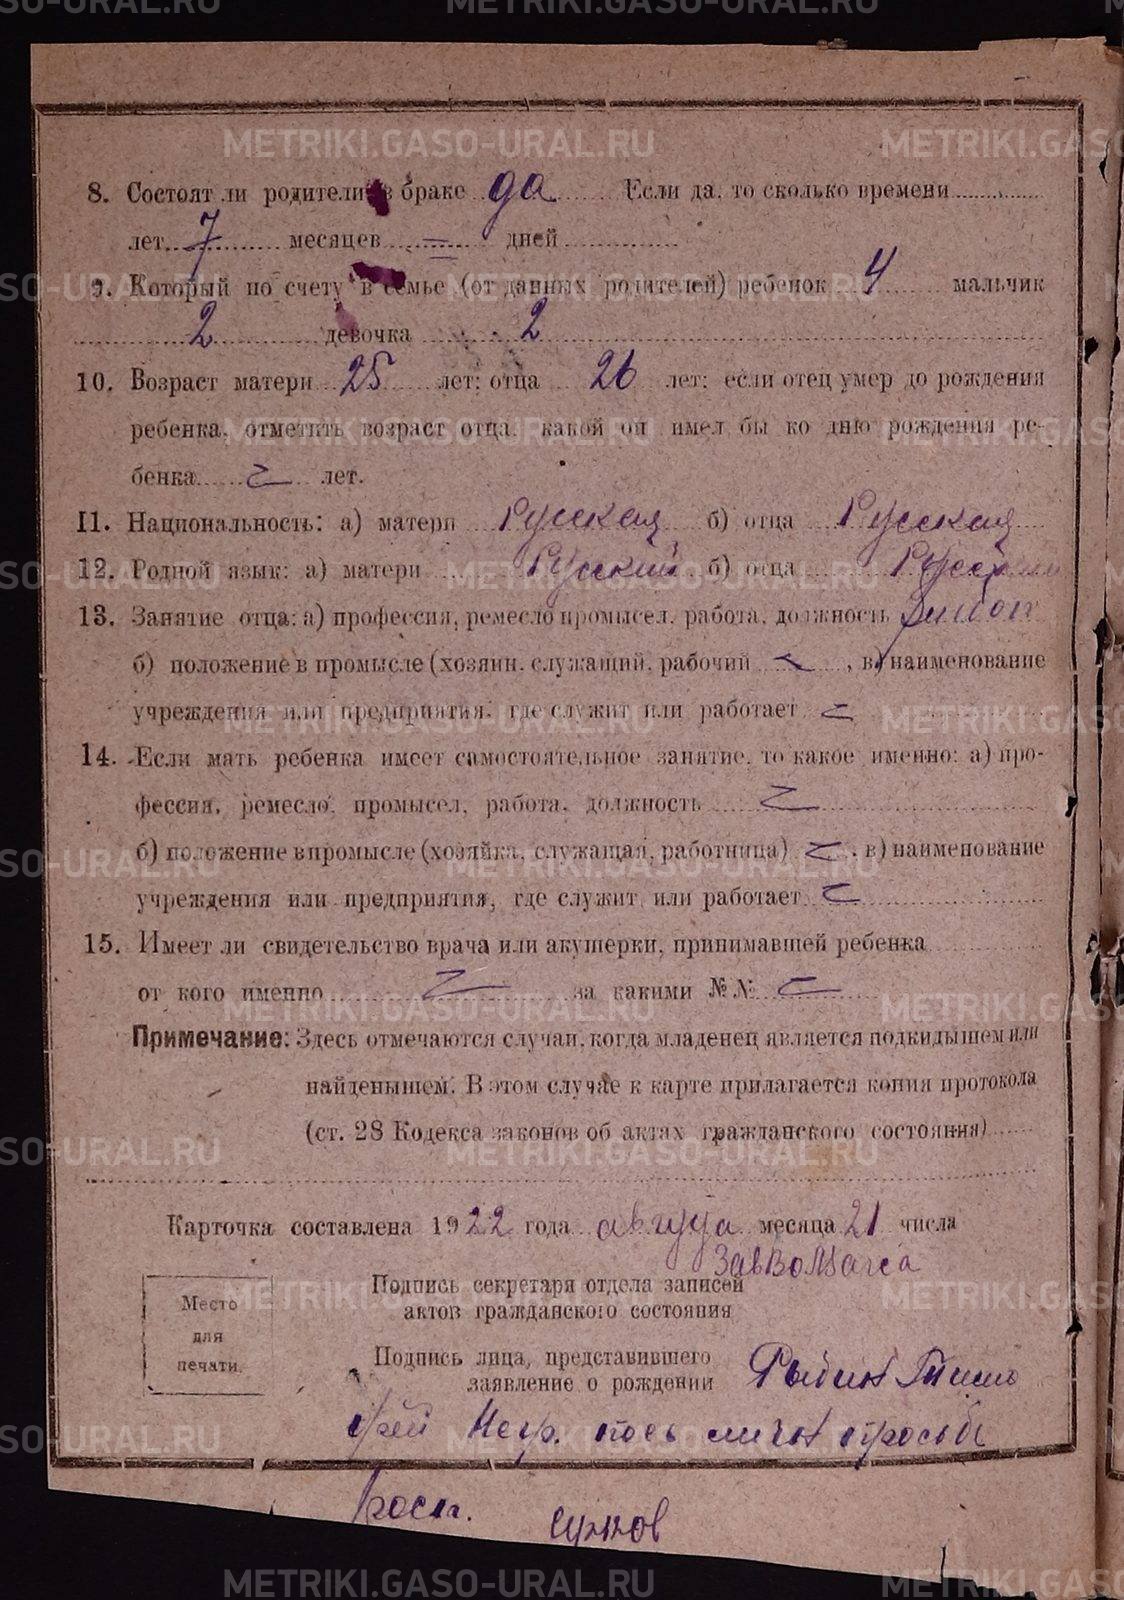 8. Состоят ли родители в браке да Если да, то сколько времени
лет 7 месяцев = дней
9. Который по счету в семье (от данных родителей) ребенок 4 мальчик
2 девочка 2
10. Возраст матери 25 лет; отца 26 лет; если отец умер до рождения
ребенка, отметить возраст отца, какой он имел бы ко дню рождения ре-
бенка лет.
11. Национальность: а) матери Русская б) отца Русская
12. Родной язык: а) матери Русский б) отца Русский
13. Занятие отца: а) профессия, ремесло промысел, работа, должность
б) положение в промысле (хозяин, служащий, рабочий , в) наименование
учреждения или предприятия, где служит или работает
14. Если мать ребенка имеет самостоятельное занятие, то какое именно: а) про-
фессия, ремесло, промысел, работа, должность
б) положение в промысле (хозяйка, служащая, работница) , в) наименование
учреждения или предприятия, где служит или работает
15. Имеет ли свидетельство врача или акушерки, принимавшей ребенка
от кого именно за какими №№
Примечание: Здесь отмечаются случаи, когда младенец является подкидышем или
найденышем. В этом случае к карте прилагается копия протокола
(ст. 28 Кодекса законов об актах гражданского состояния)
Карточка составлена 1922 года августа месяца 21 числа
Подпись секретаря отдела записей
актов гражданского состояния
Место
для
печати.
Подпись лица, представившего
заявление о рождении
METRIKI.GASO-URAL.RU